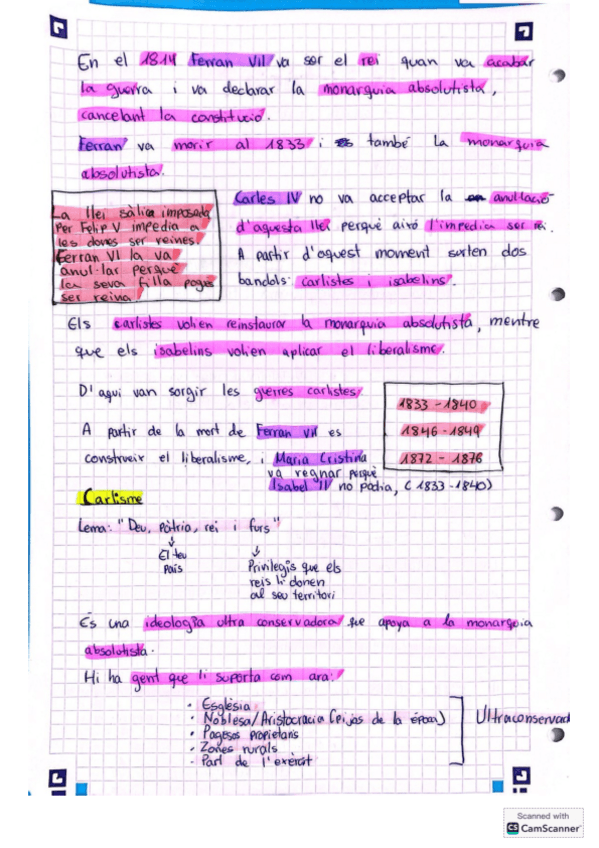 En el 1814 Ferran VII va ser el rei quan va acabar
la guerra i va declarar la monarquia absolutista,
cancelant la constitució.
Ferran va morir al 1833 i també la monarquia
absolutista.
La llei sàlica imposada
per Felip V impedia a
les dones ser reines.
Ferran VI la va
anul·lar perquè
la seva filla pogués
ser reina.
Carles IV no va acceptar la anul·lació
d'aquesta llei perquè això l'impedia ser rei.
A partir d'aquest moment surten dos
bandols: carlistes i isabelins.
Els carlistes volien reinstaurar la monarquia absolutista, mentre
que els isabelins volien aplicar el liberalisme.
D'aqui van sorgir les guerres carlistes
1833 - 1840
1846 - 1849
1872 - 1876
A partir de la mort de Ferran VII es
construeix el liberalisme, i Maria Cristina
va regnar perquè
Isabel II no podia, (1833-1840)
Carlisme
Lema: "Deu, Pàtria, rei i furs"
El teu
País
Privilegis que els
reis li donen
al seu territori
És una ideologia ultra conservadora que apoya a la monarquia
absolutista.
Hi ha gent que li suporta com ara:
· Església
· Noblesa/Aristocracia (pijos de la época)
· Pagesos propietaris
· Zones rurals
· Part de l'exèrcit
Ultraconservad
Scanned with
CS CamScanner